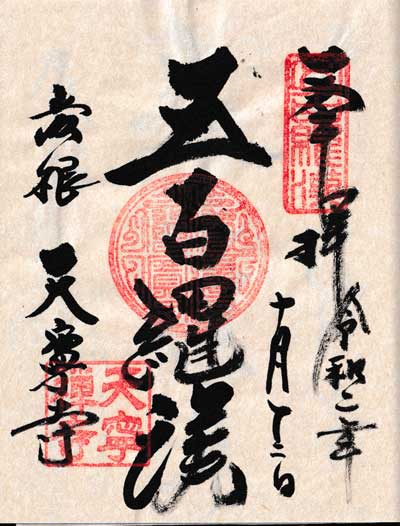 奉拝
令和二年
十月十二日
五百羅漢
彦根
天寧寺
天寧
禅寺